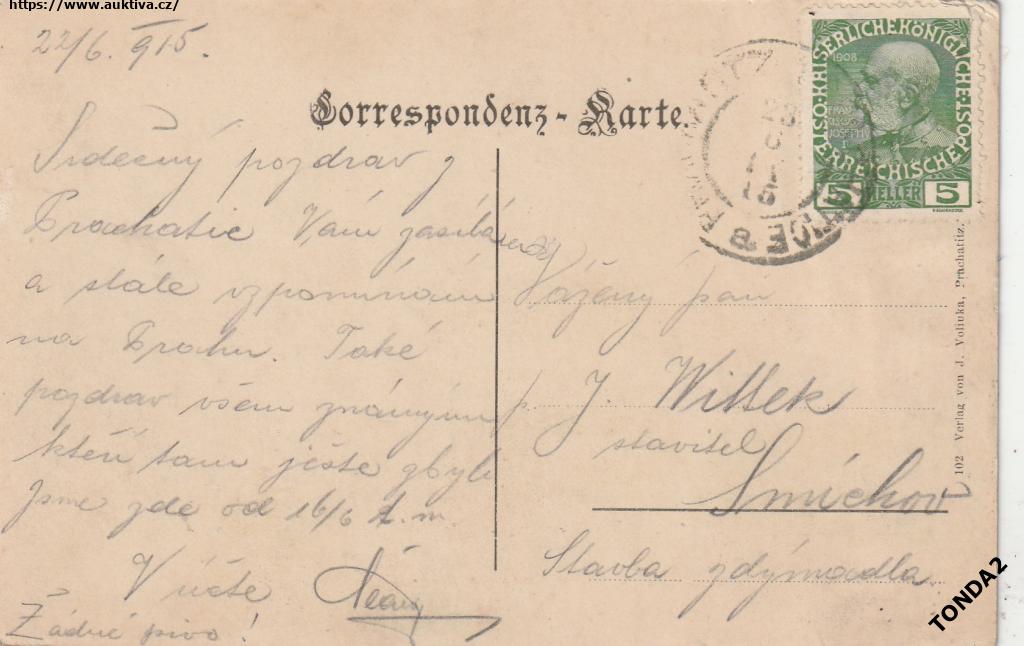 https://www.auktiva.cz/
22/6. 915.
Correspondenz-Karte.
1908
ÖSTERREICHISCHE POST KAISERLICHE KÖNIGLICHE
5 HELLER 5
Srdečný pozdrav z
Prachatic Vám zasílá
a stále vzpomínám
na Prahu. Také
pozdrav všem známým
kteří tam ještě zbyli
Jsme zde od 16/6 t.m.
V úctě
Žádné pivo!
Vážený pan
p. J. Wittek
stavitel
Smíchov
Stavba zdýmadla.
102 Verlag von J. Voliuka, Prachatitz.
TONDA2